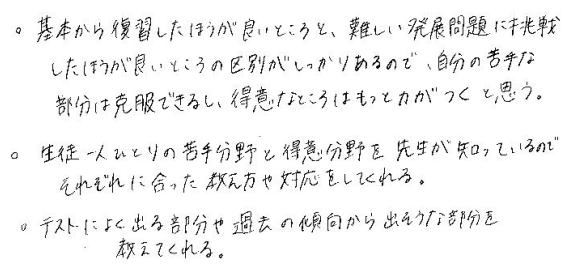 。基本から復習したほうが良いところと、難しい発展問題に挑戦
したほうが良いところの区別がしっかりあるので、自分の苦手な
部分は克服できるし、得意なところはもっと力がつくと思う。
。生徒一人ひとりの苦手分野と得意分野を先生が知っているので
それぞれに合った教え方や対応をしてくれる。
。テストによく出る部分や過去の傾向から出そうな部分を
教えてくれる。